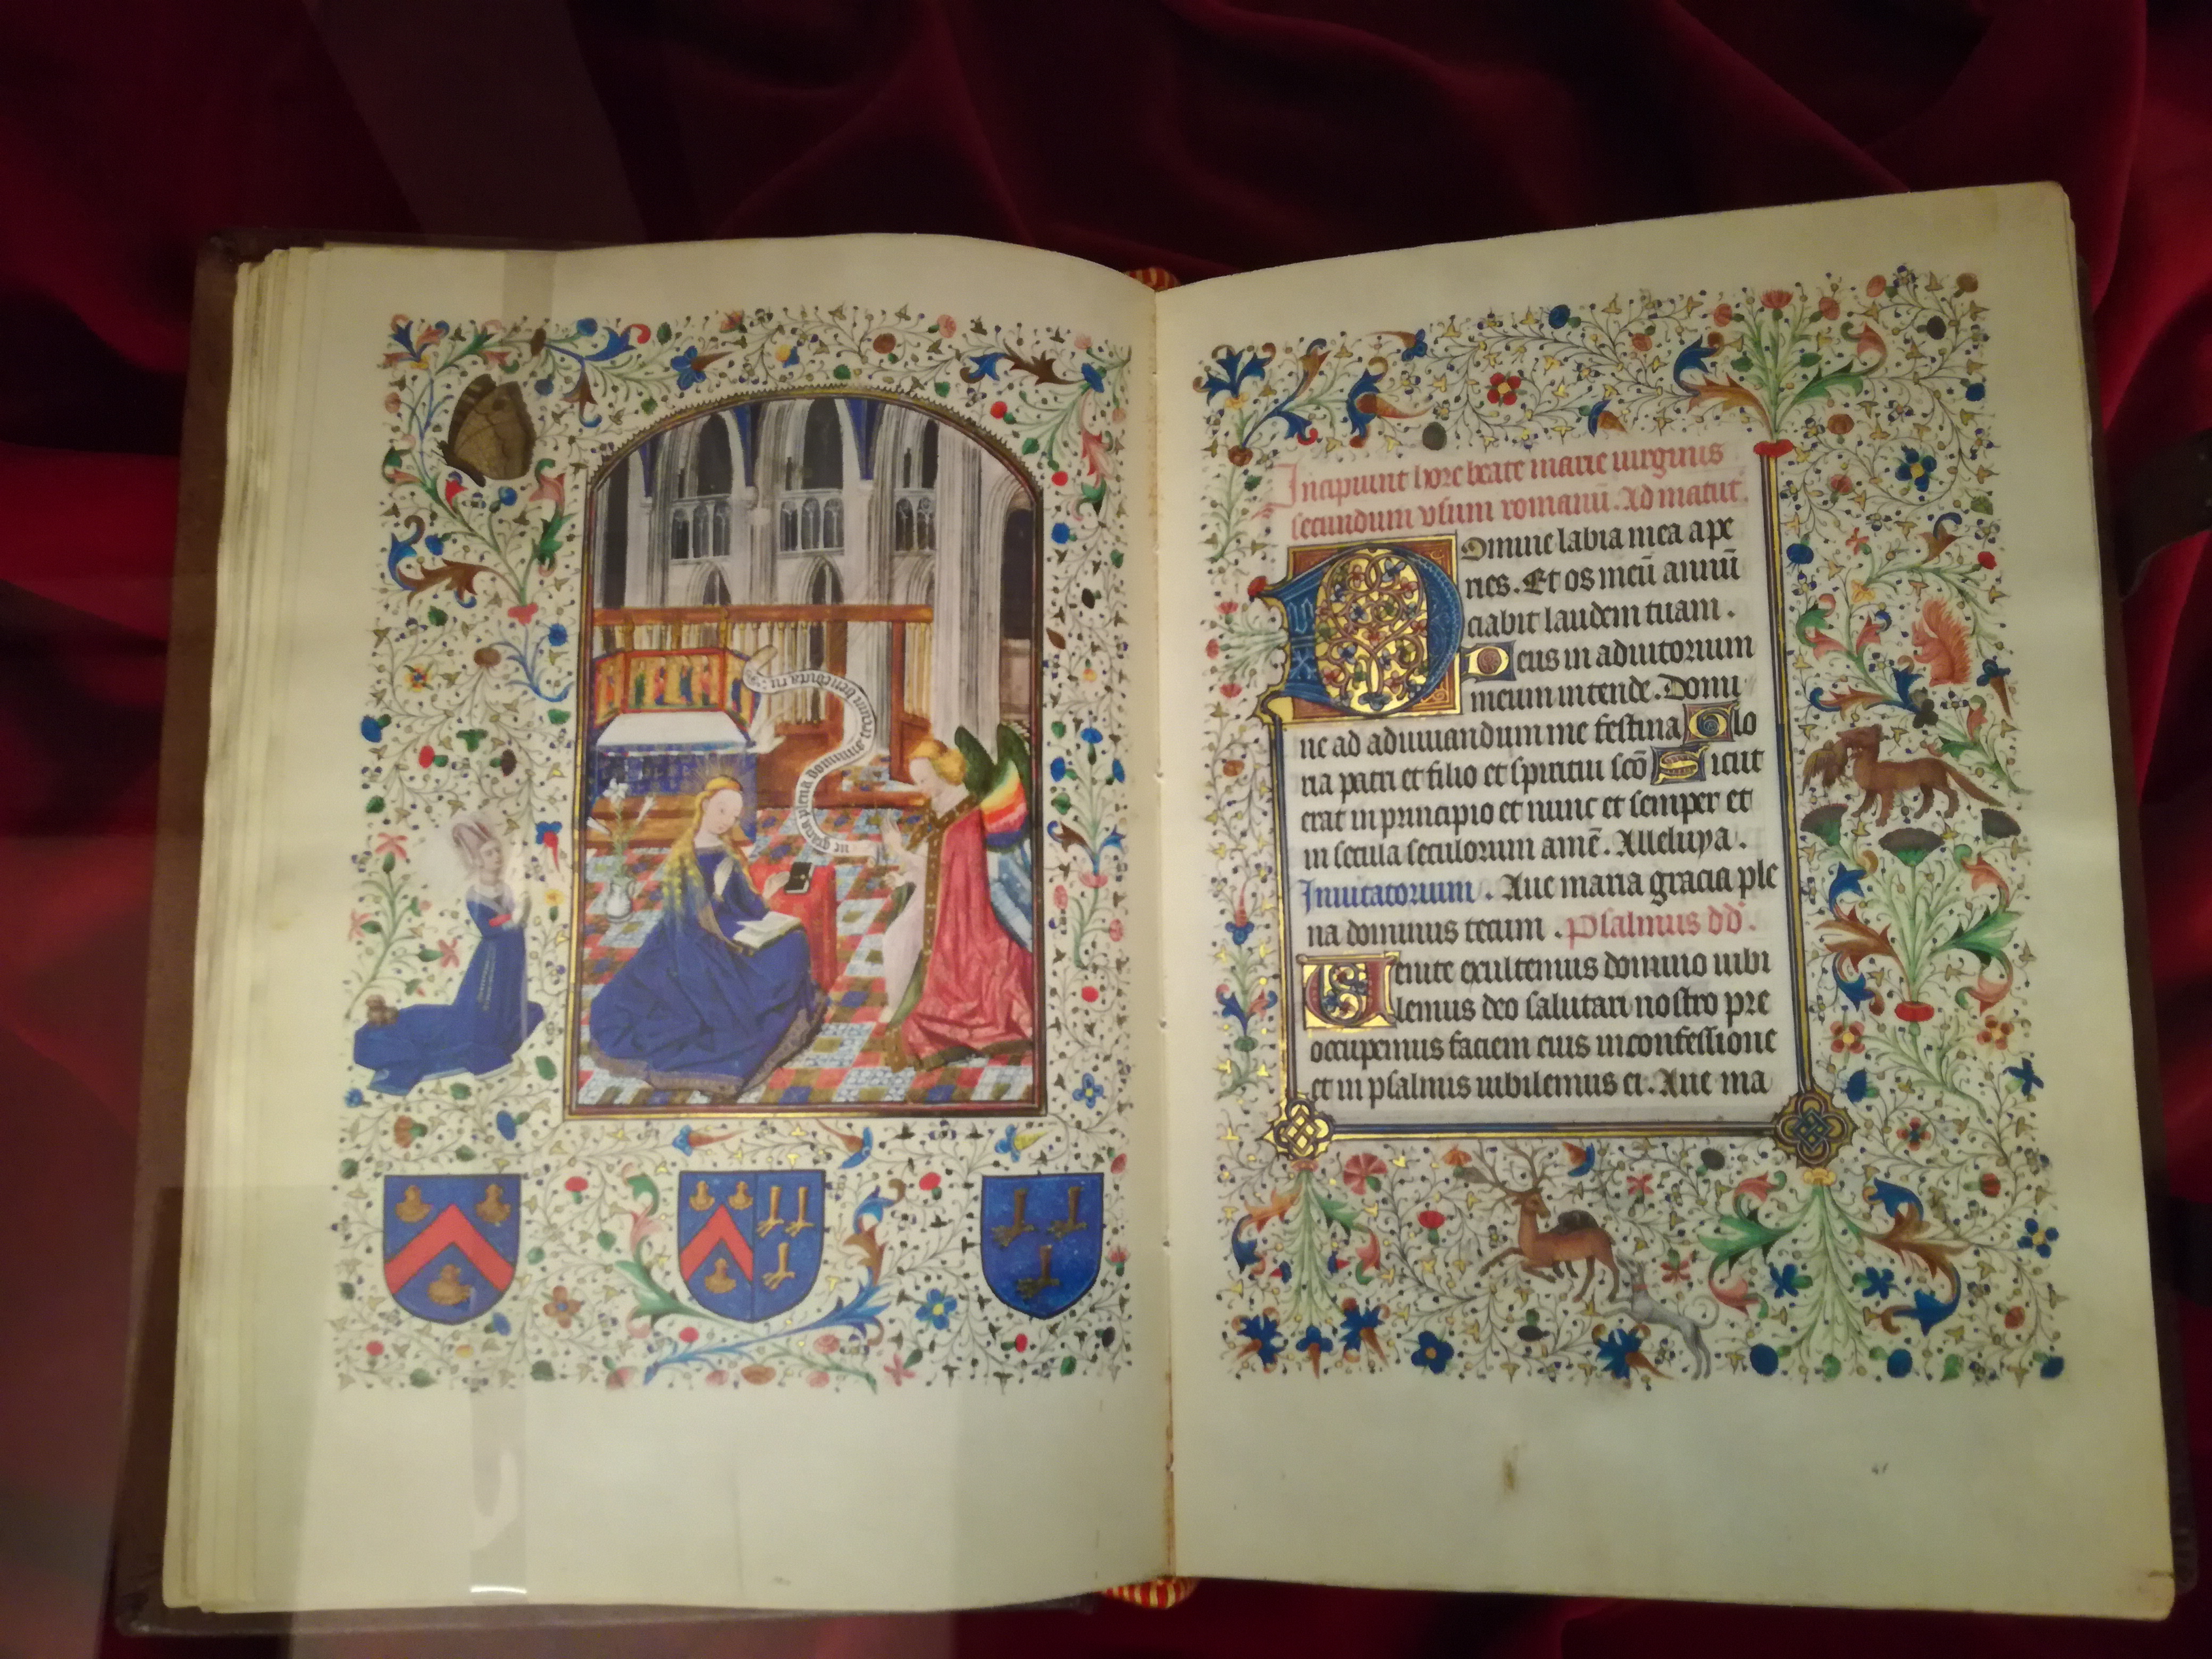 ue gracia plena dominus tecum benedicta tu
Incipiunt hore beate marie uirginis
secundum vsum romanū. Ad matut.
Domine labia mea ape
ries. Et os meū annū
ciabit laudem tuam.
Deus in adiutorium
meum intende. Domi
ne ad adiuuandum me festina Glo
ria patri et filio et spiritui scō Sicut
erat in principio et nunc et semper et
in secula seculorum amē. Alleluya.
Inuitatorium. Aue maria gracia ple
na dominus tecum. Psalmus dd.
Uenite exultemus domino iubi
lemus deo salutari nostro pre
occupemus faciem eius in confessione
et in psalmis iubilemus ei. Aue ma